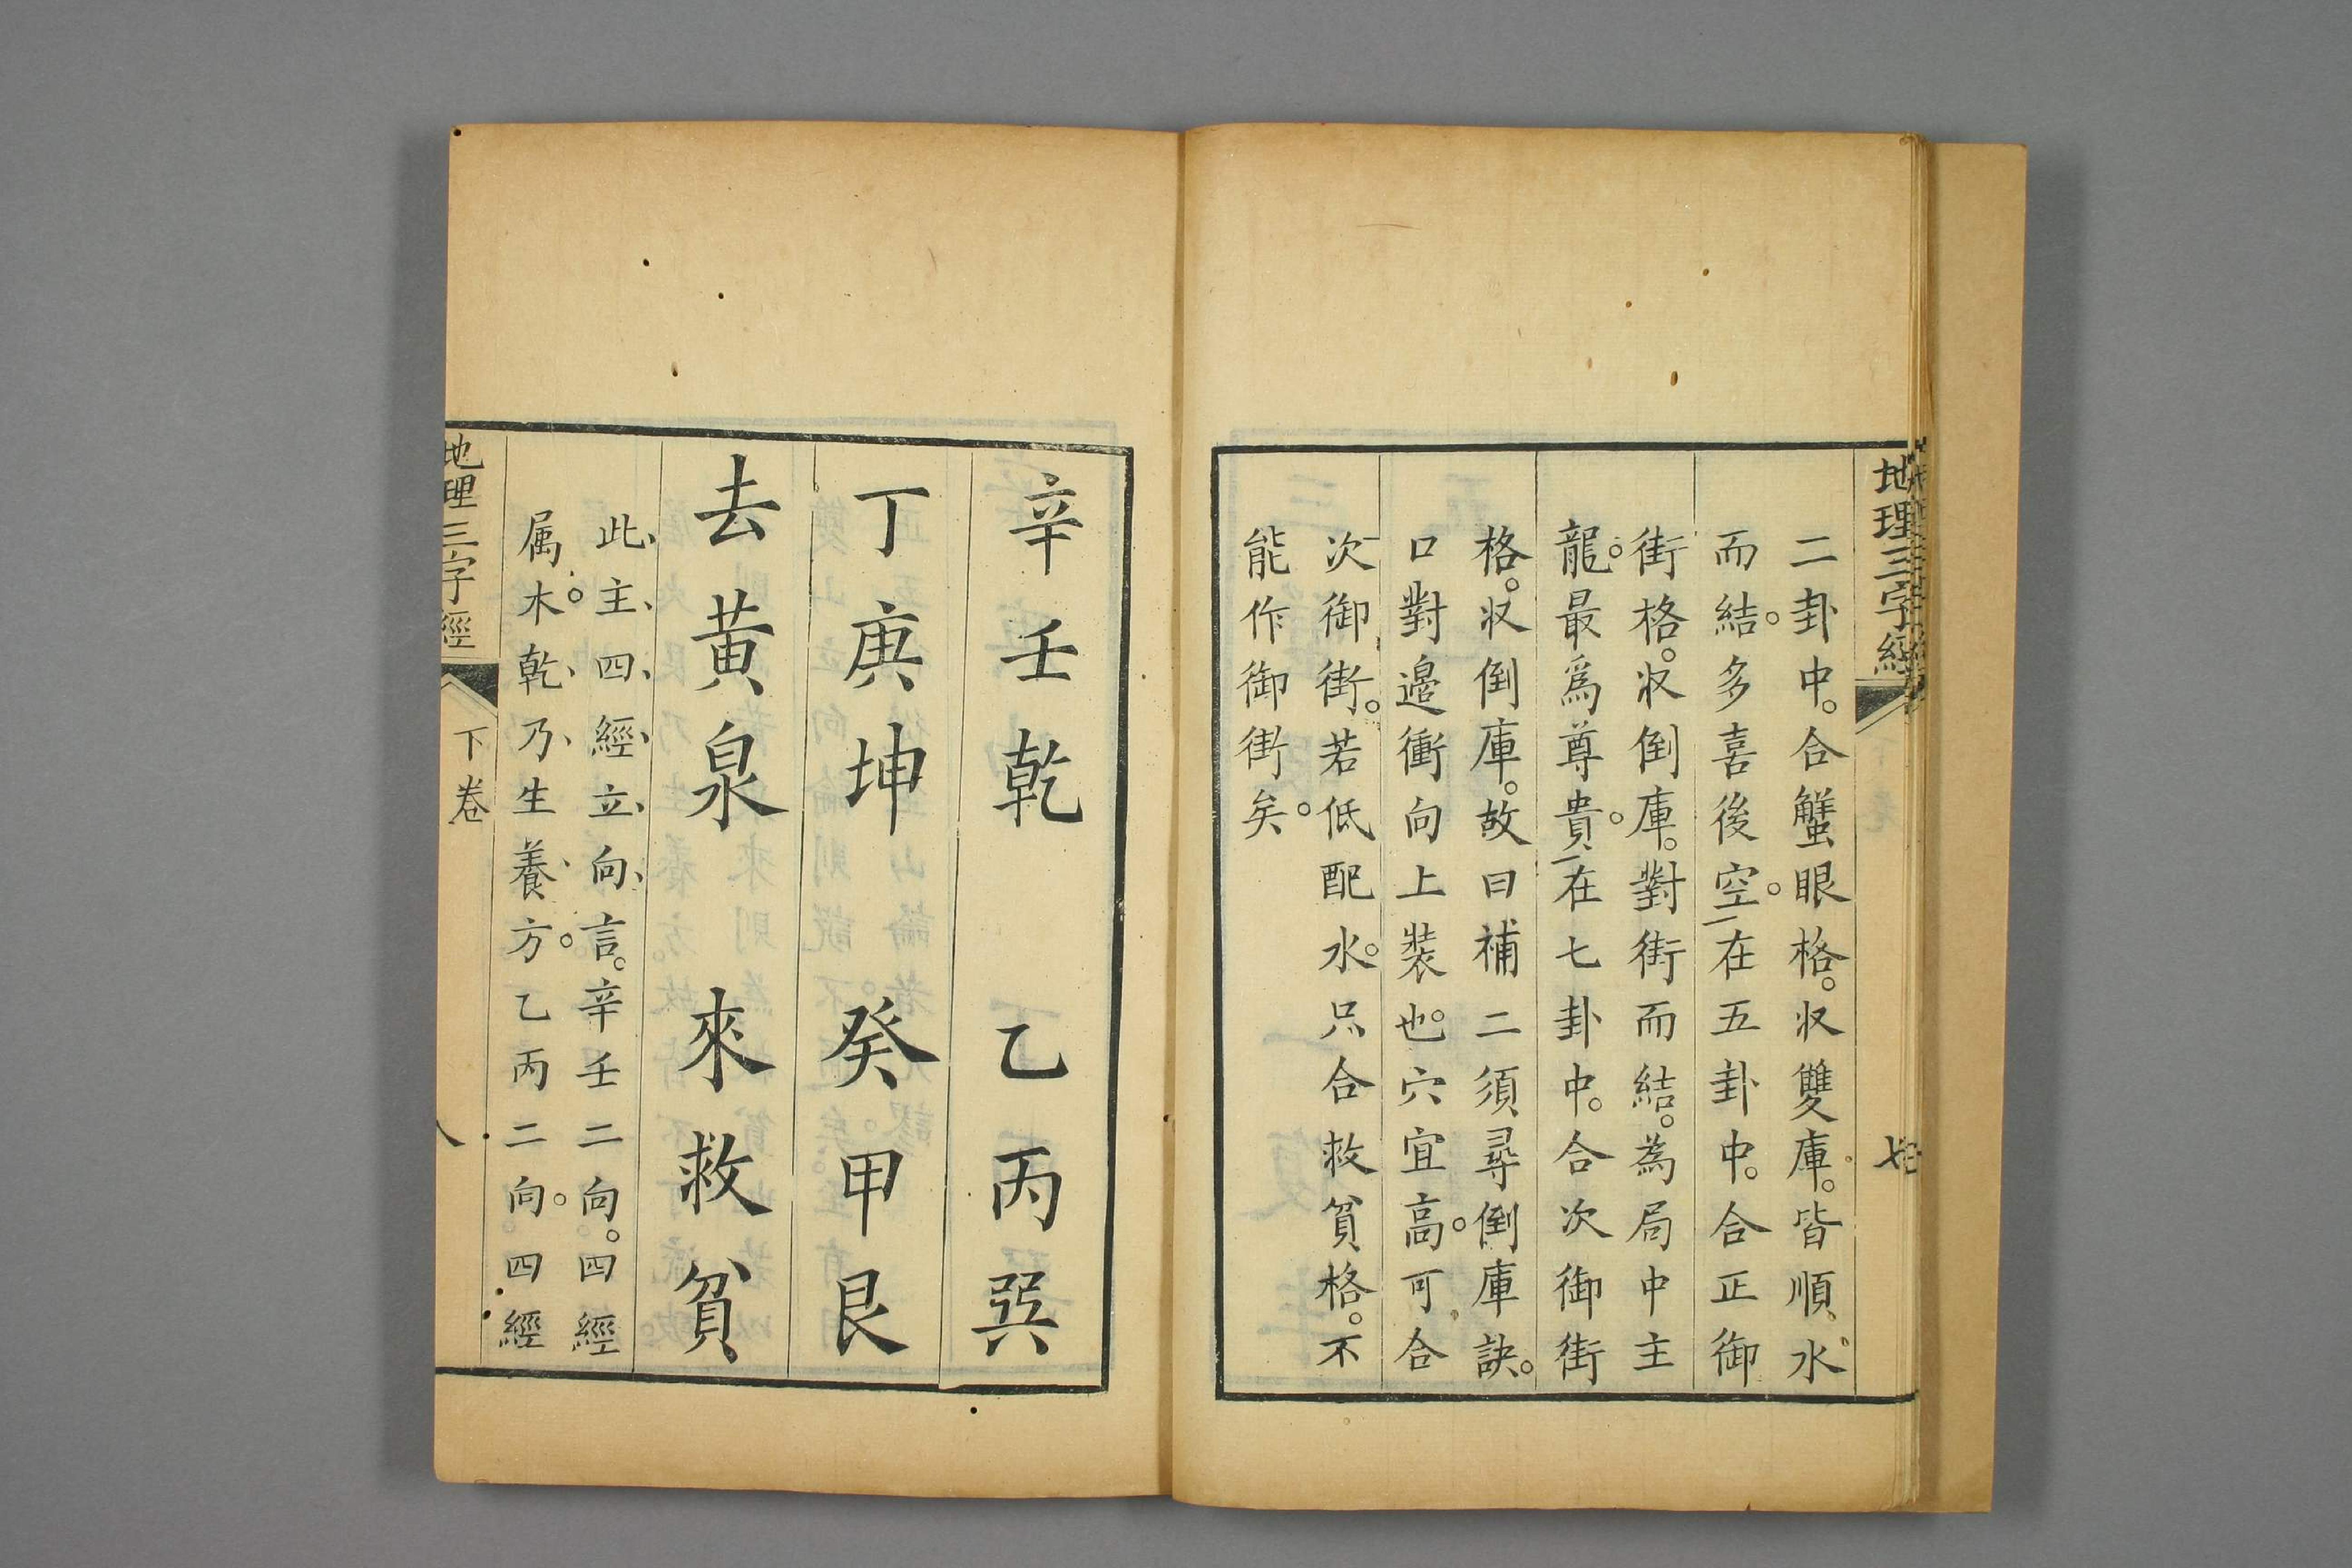 地理三字經
七
二卦中。合蟹眼格。収雙庫。皆順水
而結。多喜後空。一在五卦中。合正御
街格。収倒庫。對街而結。為局中主
龍。最爲尊貴。一在七卦中。合次御街
格。収倒庫。故曰補二須尋倒庫訣。
口對邉衝向上裝也。穴宜高。可合
次御街。若低配水。只合救貧格。不
能作御街矣。
辛壬乾　乙丙巽
丁庚坤　癸甲艮
去黃泉　來救貧
此、主、四、經、立、向、言。辛壬二向。四經
属木。乾、乃、生養、方。乙丙二向。四經
地理三字經
下卷
八